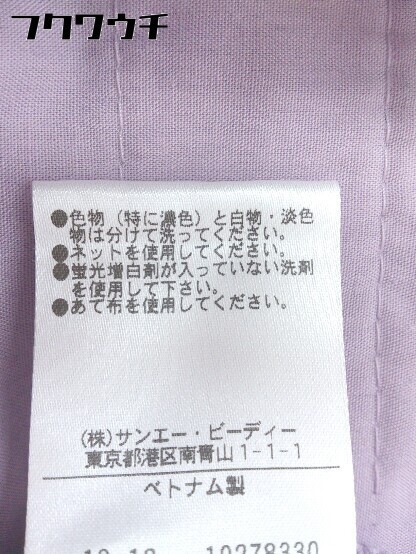 フクウクチ
●色物（特に濃色）と白物・淡色
物は分けて洗ってください。
●ネットを使用してください。
●蛍光増白剤が入っていない洗剤
を使用して下さい。
●あて布を使用してください。
(株)サンエー・ビーディー
東京都港区南青山1-1-1
ベトナム製